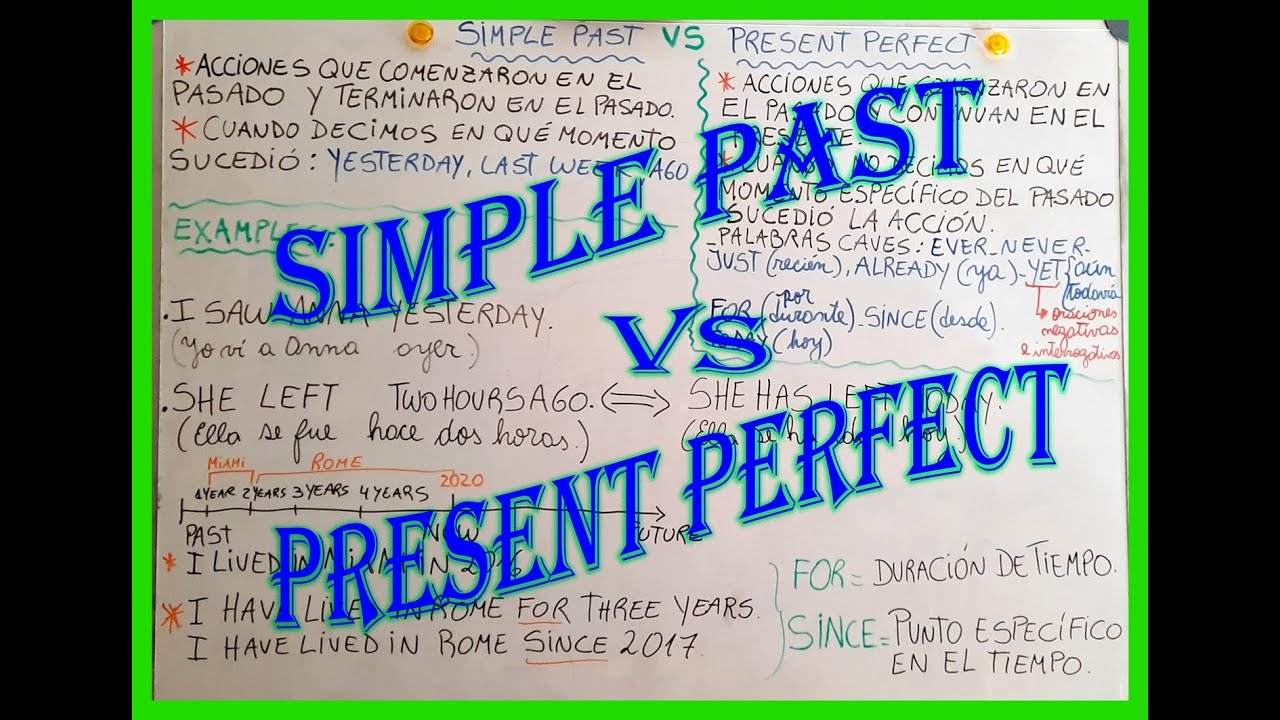 SIMPLE PAST VS PRESENT PERFECT
* ACCIONES QUE COMENZARON EN EL
PASADO Y TERMINARON EN EL PASADO.
* CUANDO DECIMOS EN QUÉ MOMENTO
SUCEDIÓ: YESTERDAY, LAST WEEK AGO
* ACCIONES QUE COMENZARON EN
EL PASADO Y CONTINUAN EN EL
PRESENTE.
* CUANDO NO DECIMOS EN QUÉ
MOMENTO ESPECÍFICO DEL PASADO
SUCEDIÓ LA ACCIÓN.
- PALABRAS CAVES: EVER - NEVER -
JUST (recién), ALREADY (ya) - YET { aún
todavía
oraciones
negativas
e interrogativas
FOR (por
durante) - SINCE (desde).
(hoy)
EXAMPLES:
. I SAW ANNA YESTERDAY.
(Yo vi a Anna ayer.)
. SHE LEFT TWO HOURS AGO. ⟺ SHE HAS LEFT TODAY.
(Ella se fue hace dos horas.) (Ella se ha ido hoy).
MIAMI ROME 2020
1 YEAR 2 YEARS 3 YEARS 4 YEARS
PAST NOW FUTURE
* I LIVED IN MIAMI IN 2016
* I HAVE LIVED IN ROME FOR THREE YEARS.
I HAVE LIVED IN ROME SINCE 2017.
FOR = DURACIÓN DE TIEMPO.
SINCE = PUNTO ESPECÍFICO
EN EL TIEMPO.
SIMPLE PAST
VS
PRESENT PERFECT